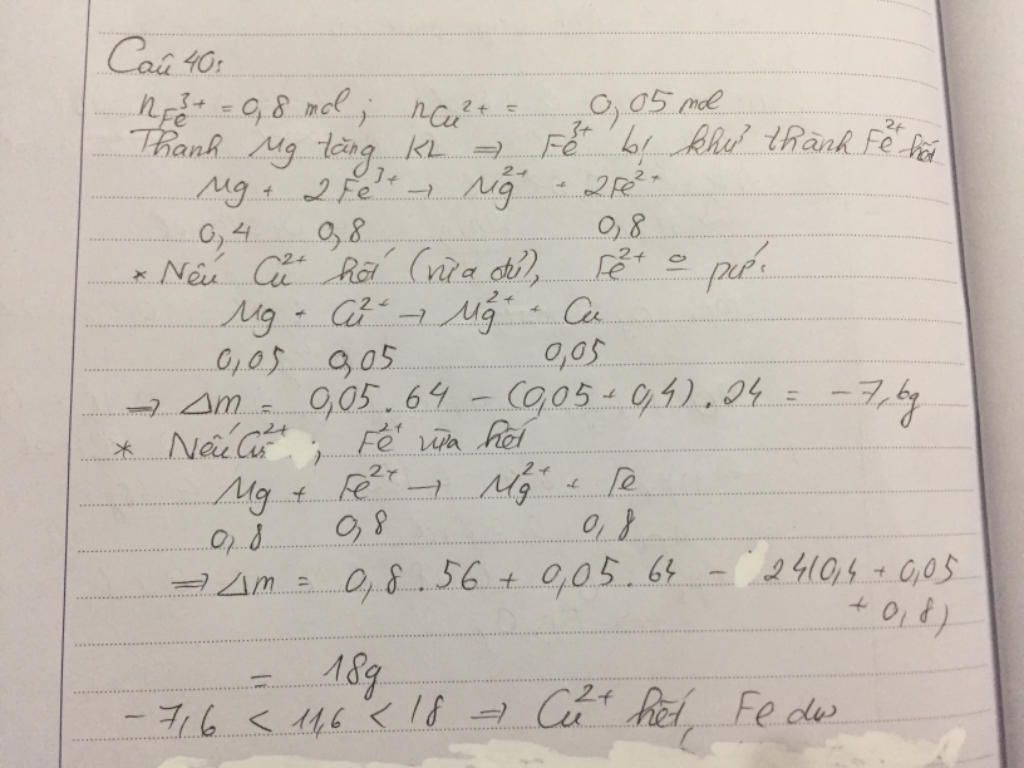 Câu 40:
nFe³⁺ = 0,8 mol ; nCu²⁺ = 0,05 mol
Thanh Mg tăng KL ⇒ Fe³⁺ bị khử thành Fe²⁺ hết
Mg + 2Fe³⁺ → Mg²⁺ + 2Fe²⁺
0,4 0,8 0,8
* Nếu Cu²⁺ hết (vừa đủ), Fe²⁺ o pứ:
Mg + Cu²⁺ → Mg²⁺ + Cu
0,05 0,05 0,05
⇒ Δm = 0,05.64 - (0,05 + 0,4).24 = -7,6g
* Nếu Cu²⁺ ; Fe²⁺ vừa hết
Mg + Fe²⁺ → Mg²⁺ + Fe
0,8 0,8 0,8
⇒ Δm = 0,8.56 + 0,05.64 - 24(0,4 + 0,05
+ 0,8)
= 18g
-7,6 < 11,6 < 18 ⇒ Cu²⁺ hết, Fe dư